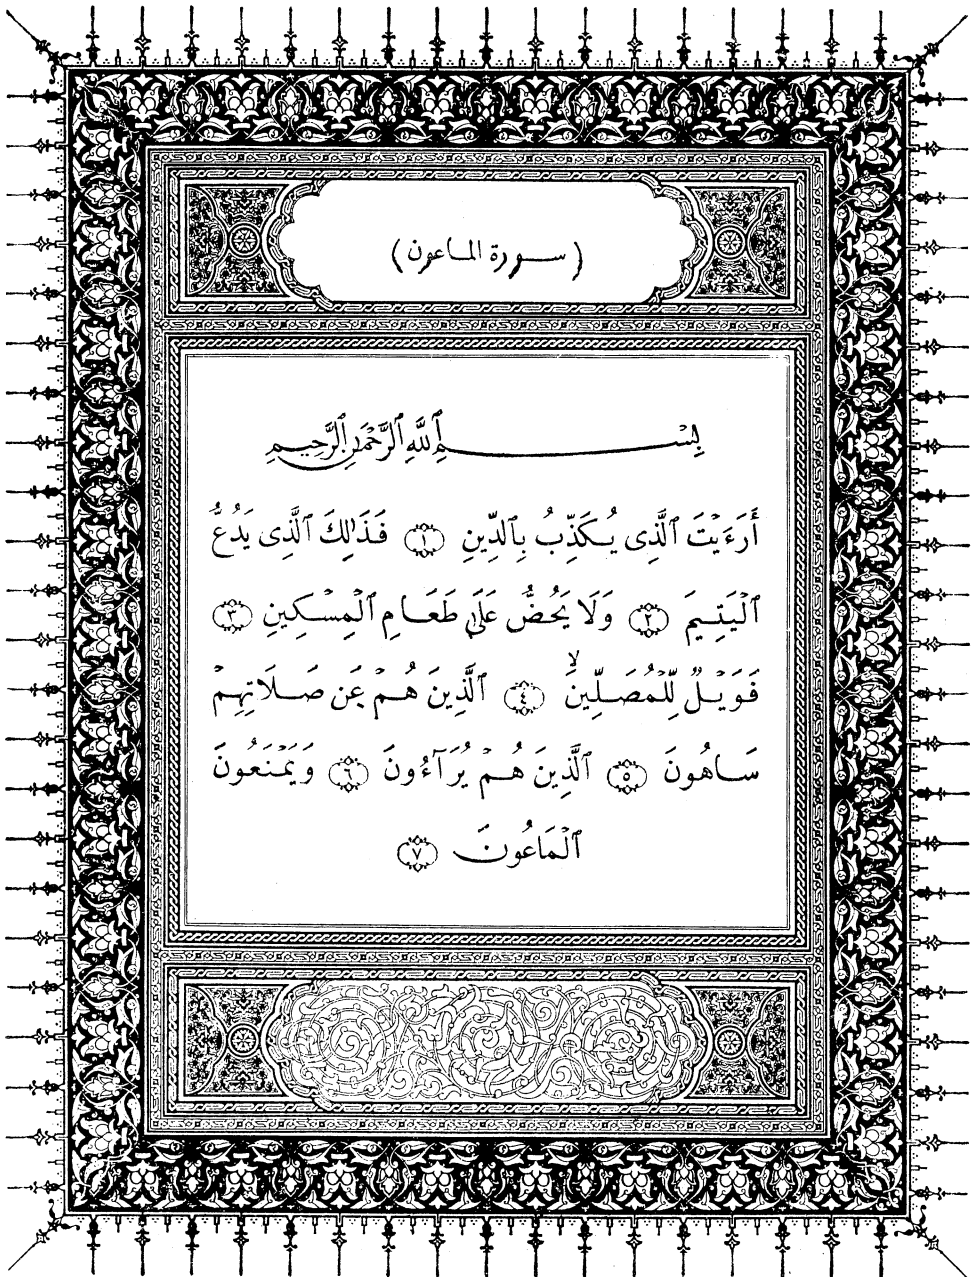 (سورة الماعون)
بِسْمِ ٱللَّهِ ٱلرَّحْمَٰنِ ٱلرَّحِيمِ
أَرَءَيْتَ ٱلَّذِى يُكَذِّبُ بِٱلدِّينِ ١ فَذَٰلِكَ ٱلَّذِى يَدُعُّ
ٱلْيَتِيمَ ٢ وَلَا يَحُضُّ عَلَىٰ طَعَامِ ٱلْمِسْكِينِ ٣
فَوَيْلٌ لِّلْمُصَلِّينَ ۙ ٤ ٱلَّذِينَ هُمْ عَن صَلَاتِهِمْ
سَاهُونَ ٥ ٱلَّذِينَ هُمْ يُرَآءُونَ ٦ وَيَمْنَعُونَ
ٱلْمَاعُونَ ٧